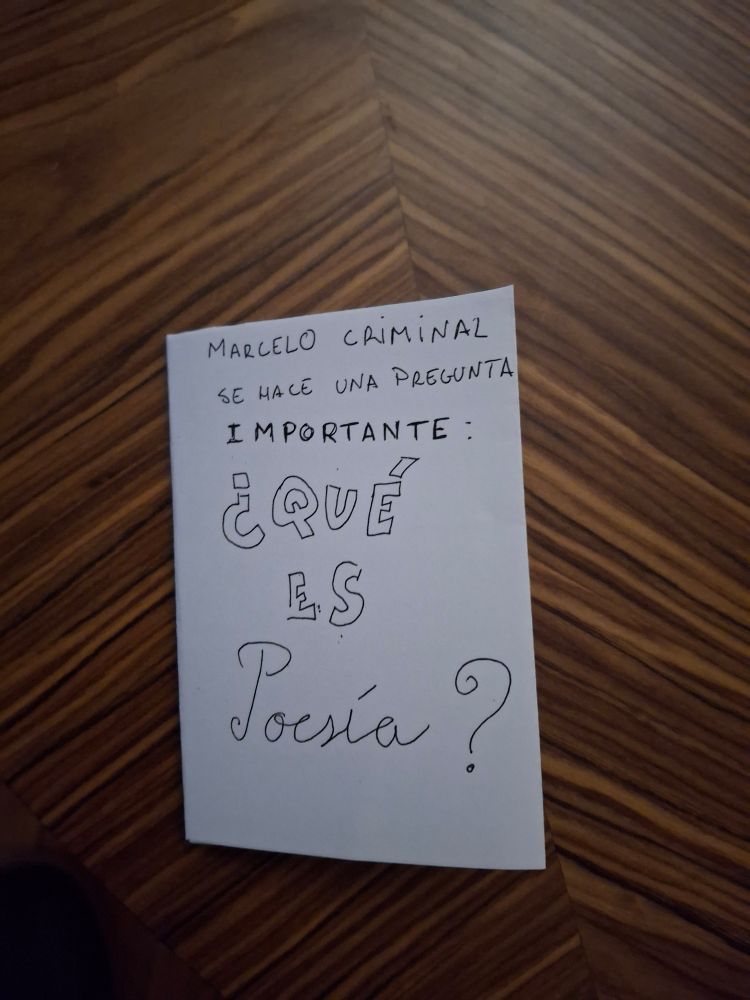 MARCELO CRIMINAL
SE HACE UNA PREGUNTA
IMPORTANTE:
¿QUÉ
ES
Poesía?